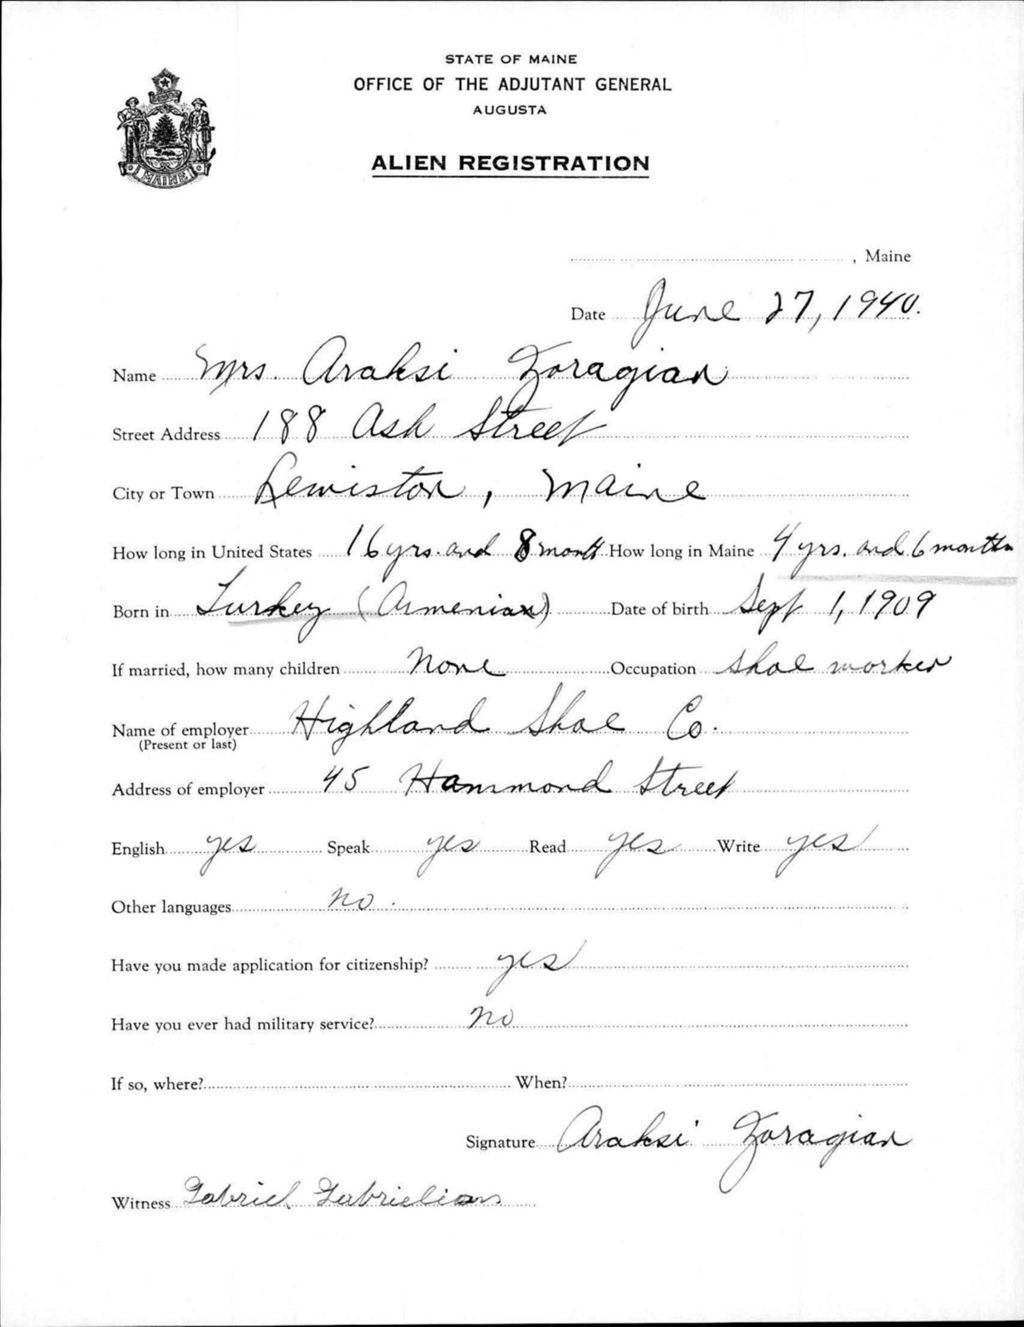 STATE OF MAINE
OFFICE OF THE ADJUTANT GENERAL
AUGUSTA
ALIEN REGISTRATION
MAINE
, Maine
Date June 27, 1940.
Name Mrs. Araksi Zoragian
Street Address 188 Ash Street
City or Town Lewiston, Maine
How long in United States 16 yrs. and 8 month How long in Maine 4 yrs. and 6 months
Born in Turkey (Armenian) Date of birth Sept 1, 1909
If married, how many children None Occupation Shoe worker
Name of employer Highland Shoe Co.
(Present or last)
Address of employer 45 Hammond Street
English yes Speak yes Read yes Write yes
Other languages no.
Have you made application for citizenship? yes
Have you ever had military service? no
If so, where? When?
Signature Araksi Zoragian
Witness Gabriel Gabrielians